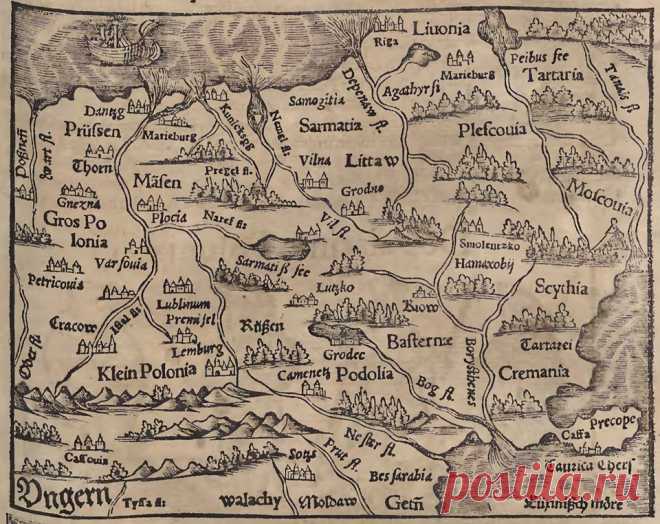 Riga
Liuonia
Peibus see
Tartaria
Tanais fl
Marieburg
Agathyrsi
Depenaw fl.
Samogitia
Sarmatia
Littaw
Plescouia
Moscouia
Dantzg
Prüssen
Marieburg
Kunicksgg
Nanel fl:
Thorn
Mäsen
Pregel fl.
Vilna
Grodno
Gnezna
Gros Po
lonia
Plocia
Naref fl:
Vil fl.
Varsouia
Sarmatiß see
Smolentzko
Hamaxobij
Scythia
Petricouia
Lublinum
Premisel
Lutzko
Kiow
Cracow
Lemburg
Rüßen
Basternæ
Borysthenes
Tartarei
Cremania
Oder fl.
Klein Polonia
Grodec
Camenetz
Podolia
Bog fl.
Precope
Caffa
Taurica Chers
Nester fl.
Prut fl.
Cassouia
Bessarabia
Vngern
Tyssa fl:
Walachy
Moldaw
postila.ru